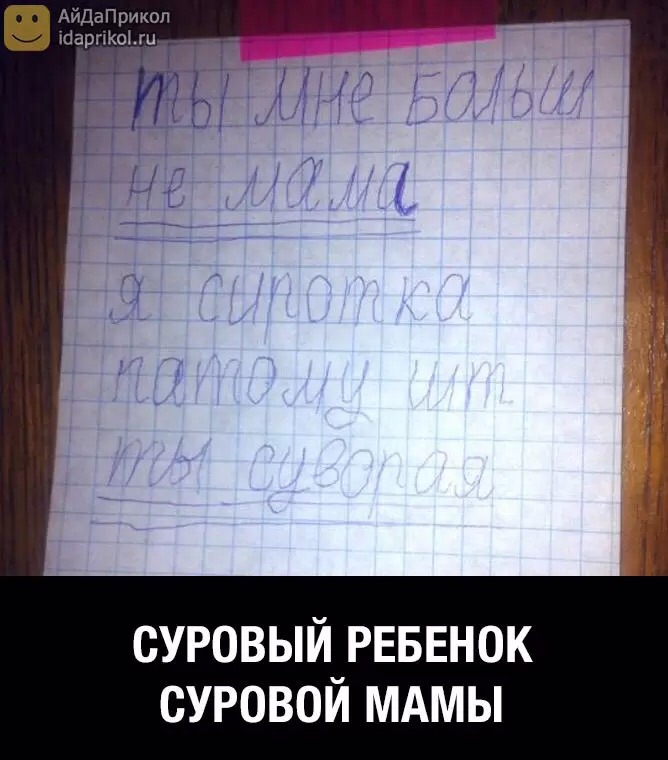 АйДаПрикол
idaprikol.ru
ты мне больш
не мама
я сиротка
патому шт
ты суворая
СУРОВЫЙ РЕБЕНОК
СУРОВОЙ МАМЫ